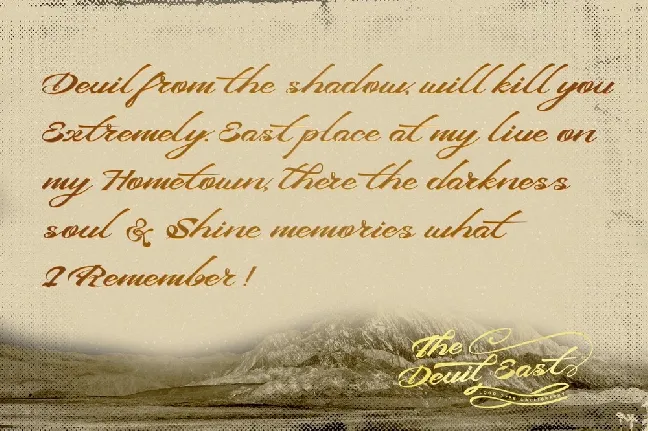 Devil from the shadow, will kill you
Extremely. East place at my live on
my Hometown, there the darkness
soul & Shine memories what
I Remember!
The
Devil East